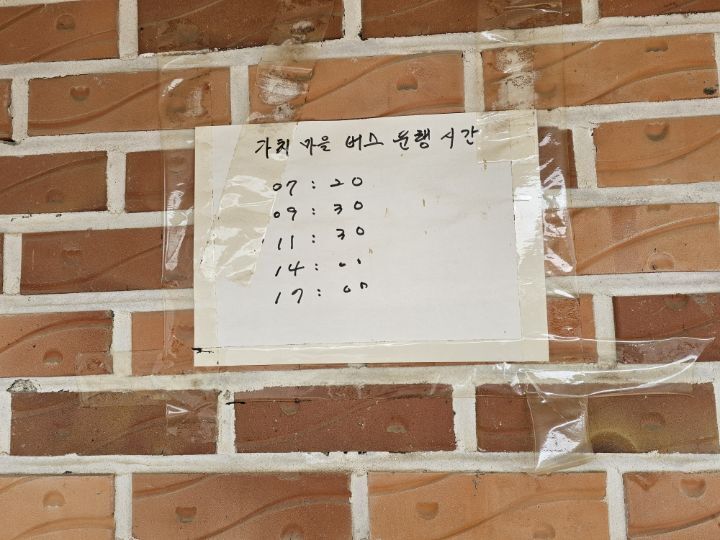 가치 마을 버스 운행 시간
07 : 20
09 : 30
11 : 30
14 : 00
17 : 00